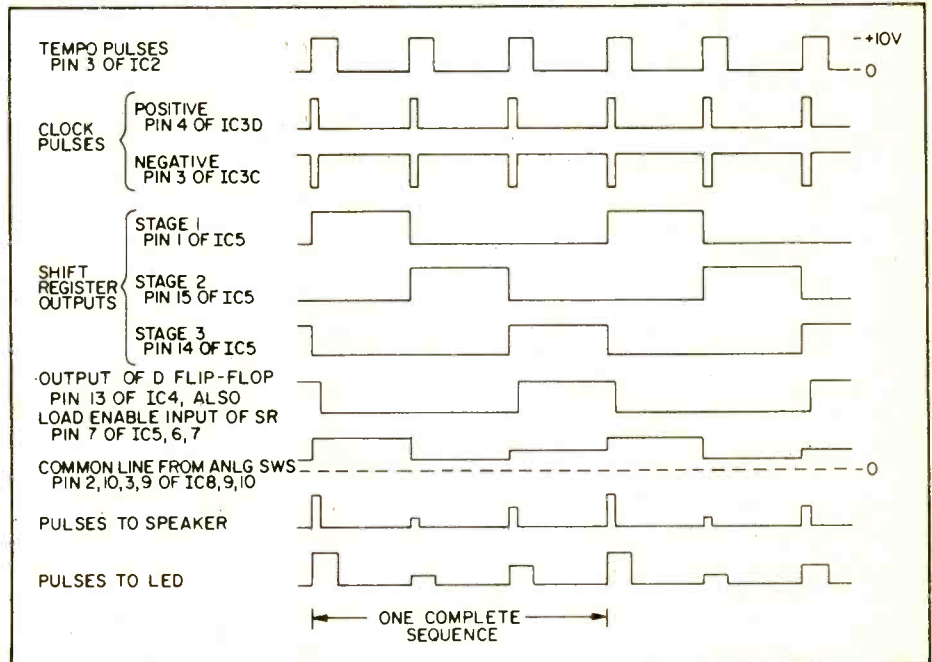 TEMPO PULSES
PIN 3 OF IC2
+10V
0
CLOCK
PULSES
POSITIVE
PIN 4 OF IC3D
NEGATIVE
PIN 3 OF IC3C
SHIFT
REGISTER
OUTPUTS
STAGE 1
PIN 1 OF IC5
STAGE 2
PIN 15 OF IC5
STAGE 3
PIN 14 OF IC5
OUTPUT OF D FLIP-FLOP
PIN 13 OF IC4, ALSO
LOAD ENABLE INPUT OF SR
PIN 7 OF IC5, 6, 7
COMMON LINE FROM ANLG SWS
PIN 2, 10, 3, 9 OF IC8, 9, 10
0
PULSES TO SPEAKER
PULSES TO LED
ONE COMPLETE
SEQUENCE